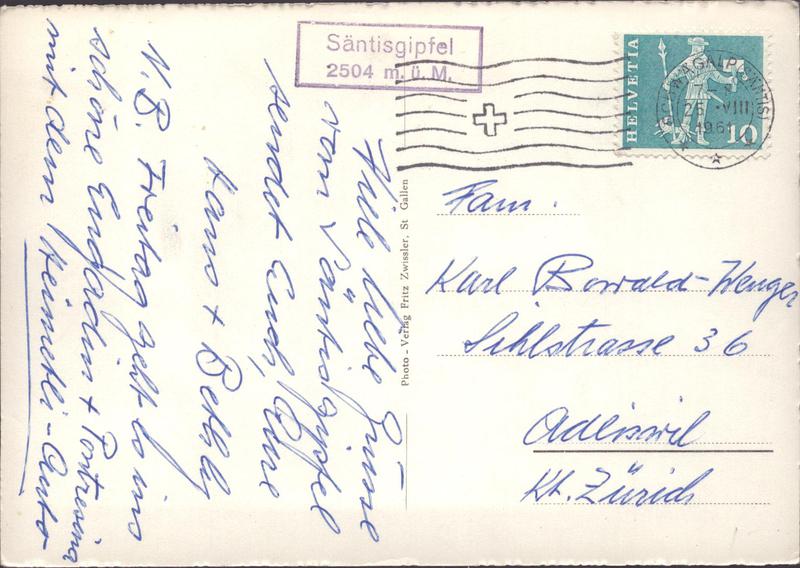 Säntisgipfel
2504 m. ü. M.
HELVETIA
10
25. VIII
1961
Viele liebe Grüsse
vom Säntisgipfel
sendet Euch, Eure
Hans + Bethly
N.B. Freitag geht es ins
schöne Engadin + Pontresina
mit dem Heimetli-Auto
Photo - Verlag Fritz Zwissler, St Gallen
Fam.
Karl Bowald-Wenger
Sihlstrasse 36
Adliswil
Kt. Zürich